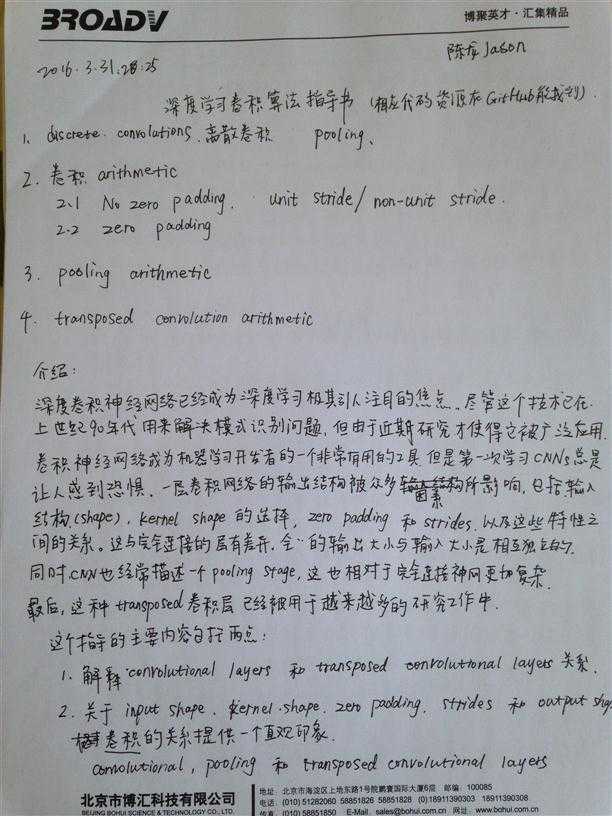 BROADV
博聚英才·汇集精品
陈龙Jason
2016.3.31.20:25
深度学习卷积算法指导书 (相应代码资源在GitHub能找到).
1. discrete convolutions. 离散卷积 pooling、
2. 卷积 arithmetic
2.1 No zero padding. unit stride/non-unit stride.
2.2 zero padding
3. pooling arithmetic
4. transposed convolution arithmetic
介绍:
深度卷积神经网络已经成为深度学习极其引人注目的焦点。尽管这个技术已在
上世纪90年代用来解决模式识别问题,但由于近期研究才使得它被广泛应用.
卷积神经网络成为机器学习开发者的一个非常有用的工具.但是第一次学习CNNs总是
让人感到恐惧.一层卷积网络的输出结构被众多因素所影响,包括输入
结构(shape), kernel shape 的选择, zero padding 和 strides. 以及这些特性之
间的关系。这与完全连接的层有差异, 的输出大小与输入大小是相互独立的.
同时CNN也经常描述一个pooling stage, 这也相对于完全连接神网更加复杂.
最后,这种transposed卷积层已经被用于越来越多的研究工作中.
这个指导的主要内容包括两点:
1. 解释 convolutional layers 和 transposed convolutional layers 关系.
2. 关于 input shape. kernel shape. zero padding. strides 和 output shape
卷积的关系提供一个直观印象.
convolutional, pooling 和 transposed convolutional layers
北京市博汇科技有限公司
BEIJING BOHUI SCIENCE & TECHNOLOGY CO., LTD.
地址:北京市海淀区上地东路1号院鹏寰国际大厦6层 邮编:100085
电话:(010) 51282060 58851826 58851828 (0)18911390303 18911390308
传真:(010) 58851850 E-Mail: sales@bohui.com.cn